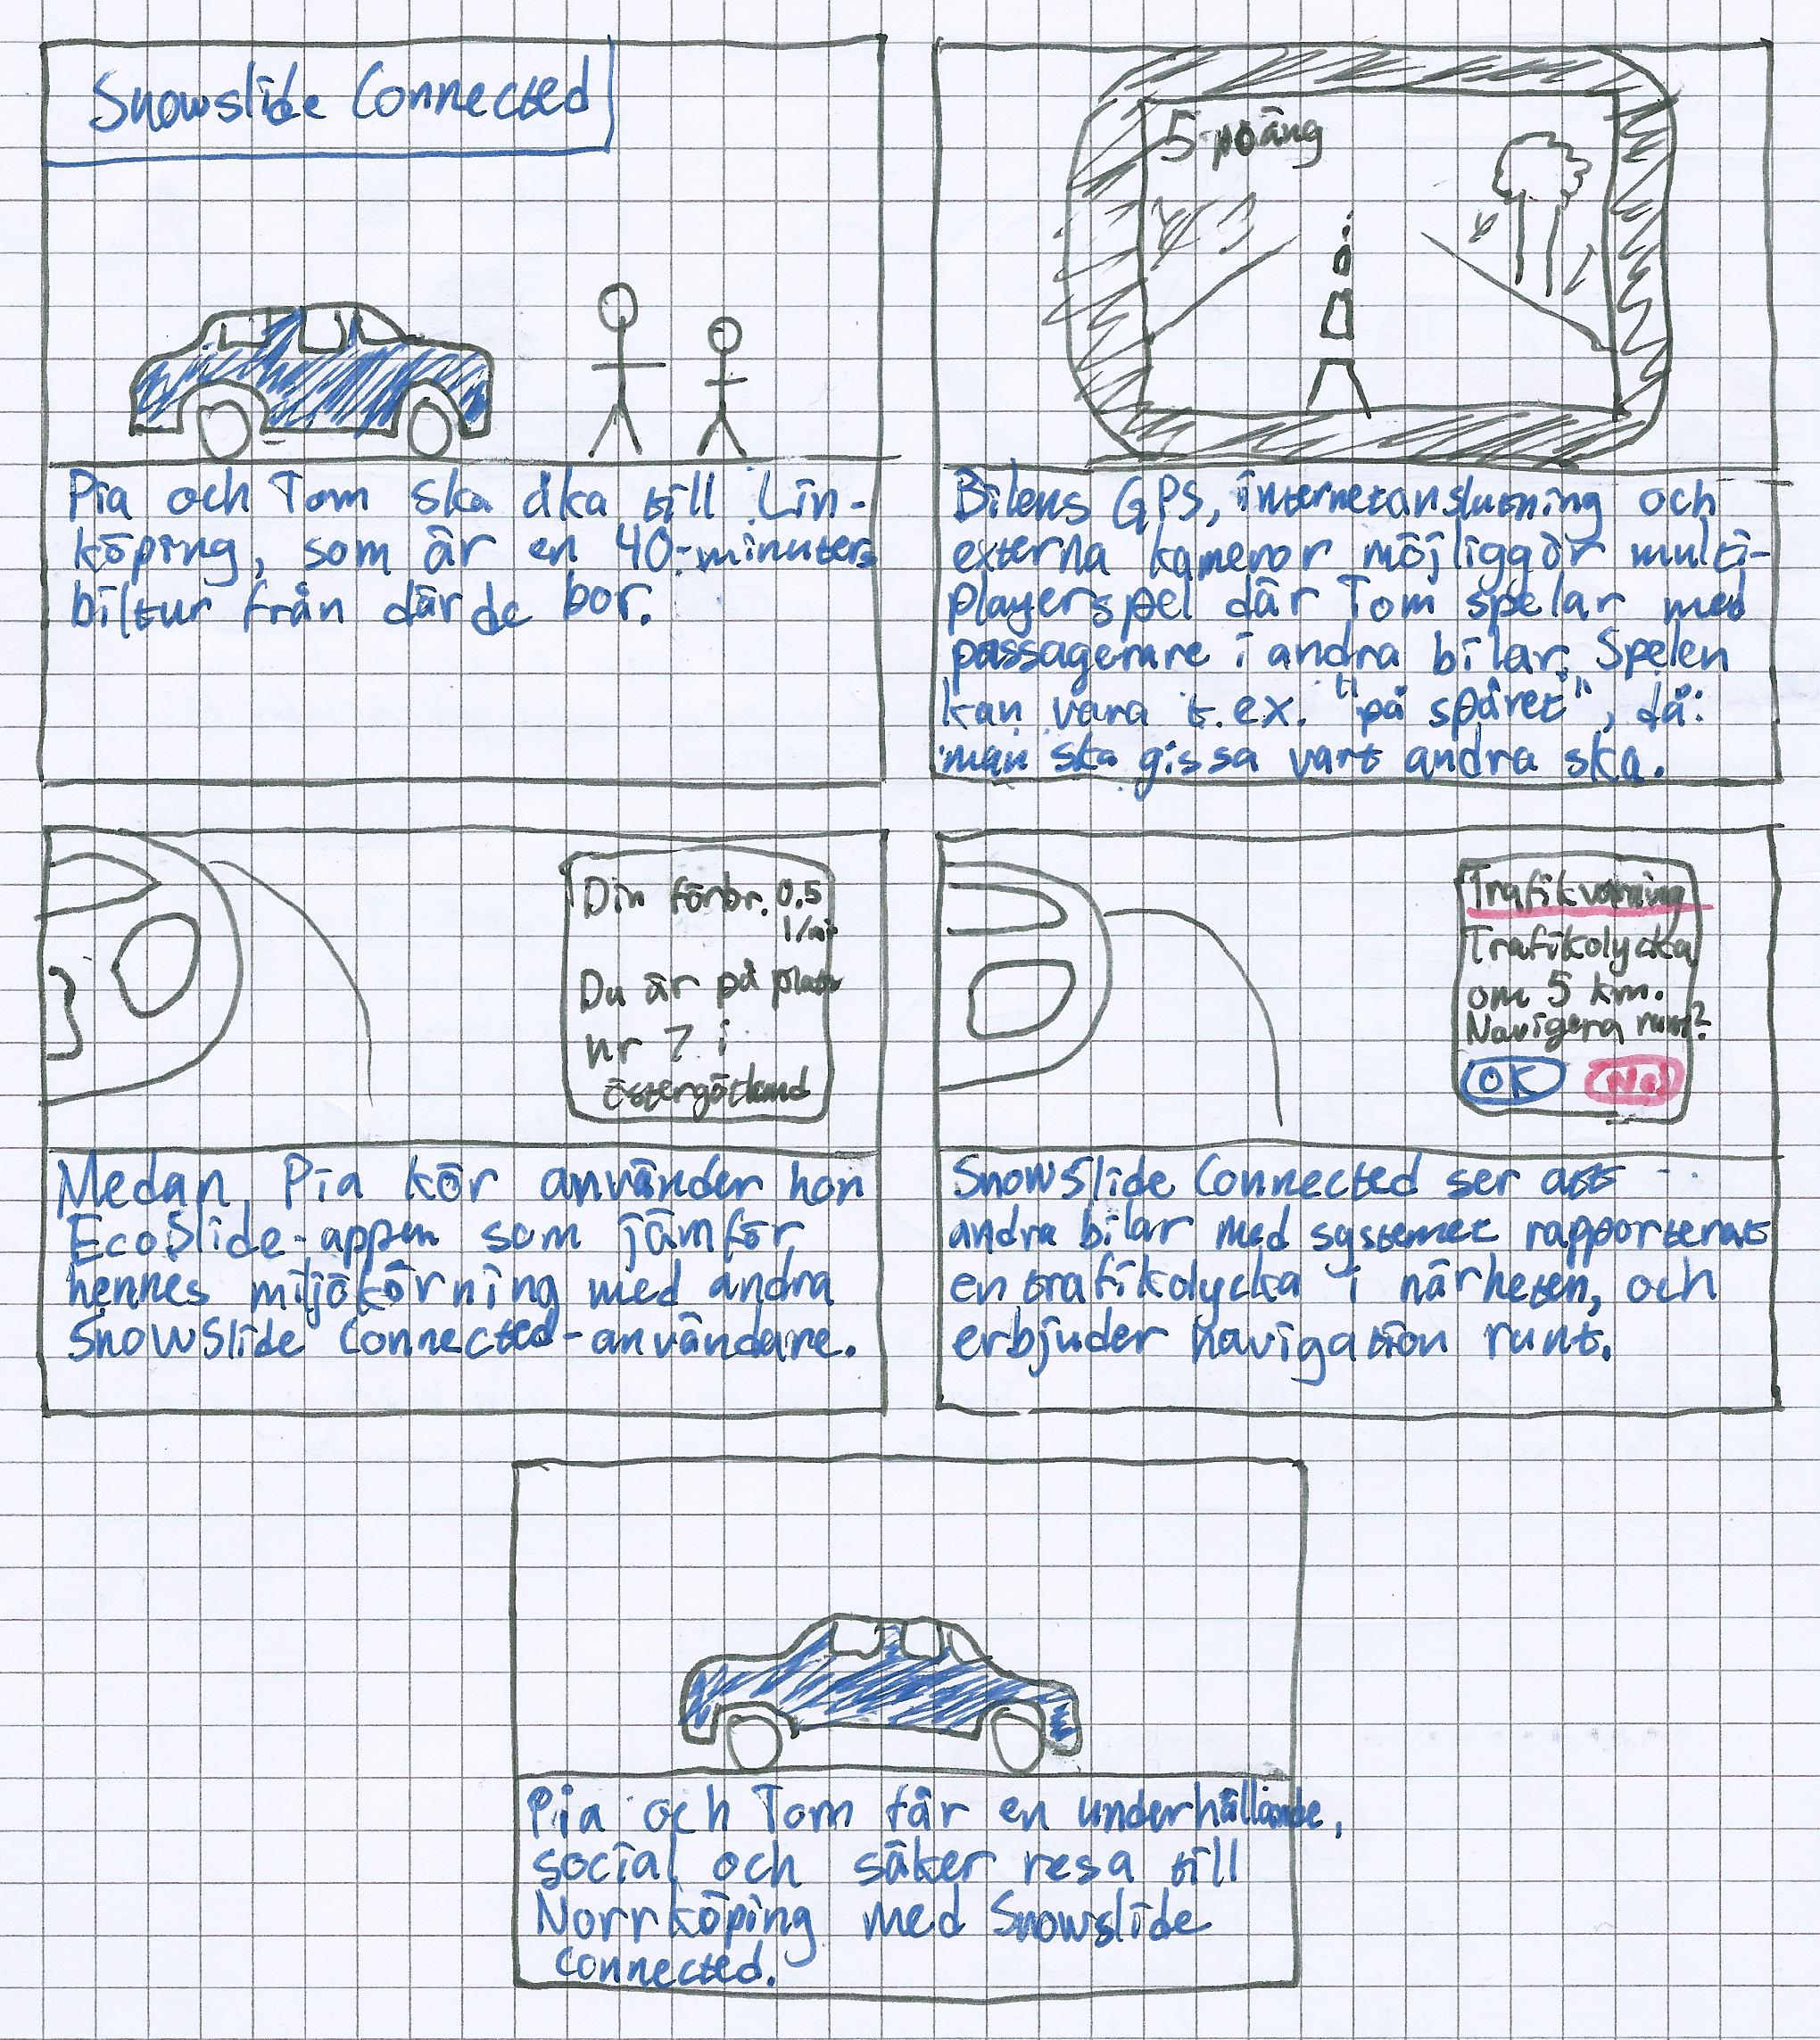 Snowslide Connected
Pia och Tom ska åka till Lin-
köping, som är en 40-minuters
biltur från där de bor.
5 poäng
Bilens GPS, internetanslutning och
externa kameror möjliggör multi-
playerspel där Tom spelar med
passagerare i andra bilar. Spelen
kan vara t.ex. "på spåret", då
man ska gissa vart andra ska.
Din förbr. 0.5
l/mil
Du är på plats
nr 7 i
östergötland
Medan Pia kör använder hon
EcoSlide-appen som jämför
hennes miljökörning med andra
SnowSlide Connected-användare.
Trafikvarning
Trafikolycka
om 5 km.
Navigera runt?
OK No
SnowSlide Connected ser att
andra bilar med systemet rapporterat
en trafikolycka i närheten, och
erbjuder navigation runt.
Pia och Tom får en underhållande,
social och säker resa till
Norrköping med Snowslide
connected.